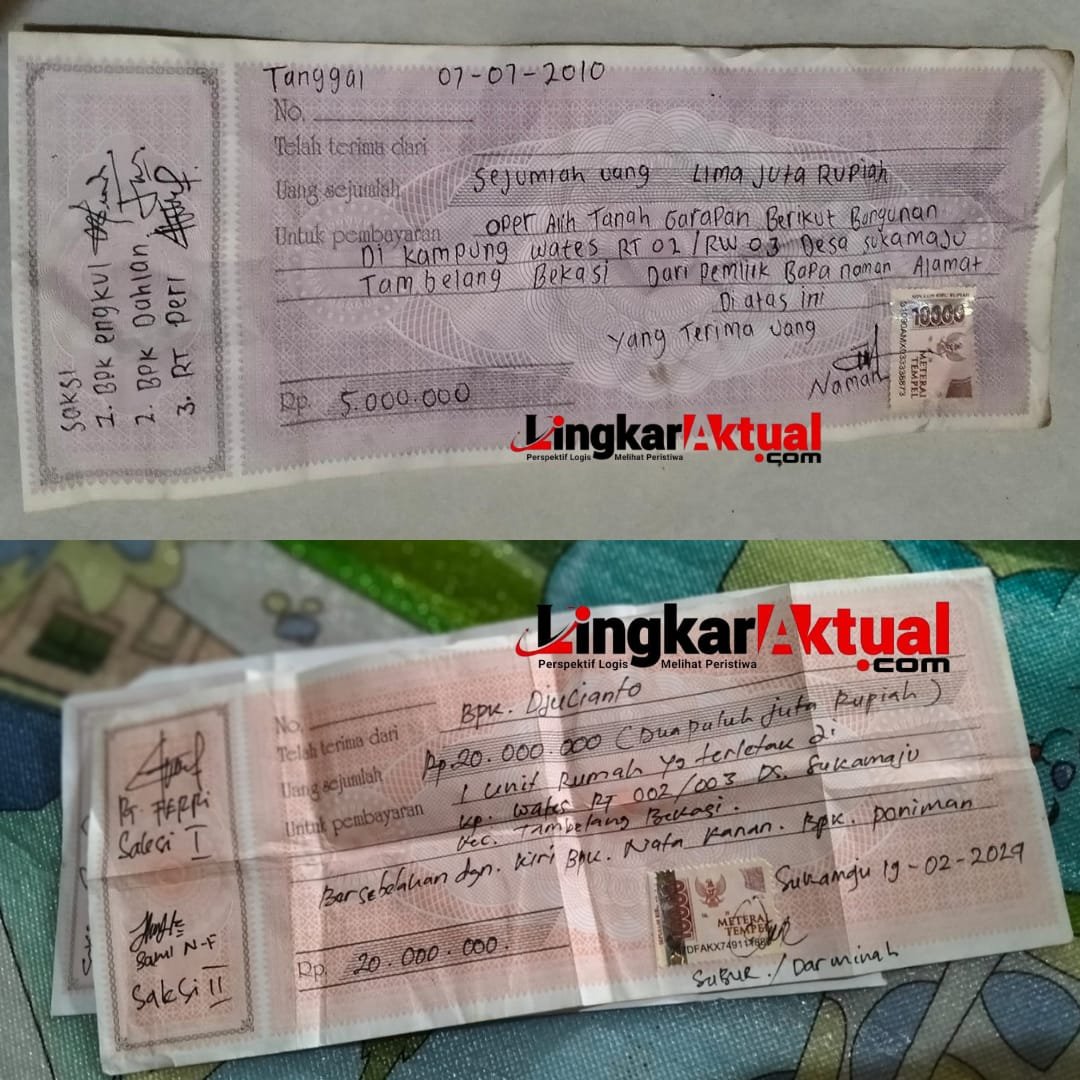 Tanggal 07-07-2010
No.
Telah terima dari
Uang sejumlah Sejumlah uang Lima Juta Rupiah
Untuk pembayaran oper Alih Tanah Garapan Berikut Bangunan
Di kampung wates RT 02/RW 03 Desa sukamaju
Tambelang Bekasi Dari pemilik Bapa naman Alamat
Di atas ini
Yang Terima uang
Naman
Rp. 5.000.000
10000
METERAI
TEMPEL
Saksi
1. BPK engkul
2. BPK Dahlan
3. RT peri
LingkarAktual
.com
Perspektif Logis Melihat Peristiwa
LingkarAktual
.com
Perspektif Logis Melihat Peristiwa
No.
Telah terima dari Bpk. Djucianto
Uang sejumlah Rp.20.000.000 (Dua puluh juta Rupiah)
Untuk pembayaran 1 unit Rumah yg terletak di
Kp. wates RT 002/003 Ds. Sukamaju
Kec. Tambelang Bekasi.
Bersebelahan dgn. Kiri Bpk. Nata Kanan. Bpk. poniman
Rp. 20.000.000.
10000
METERAI
TEMPEL
Subur./Darminah
Saksi I
Saksi II